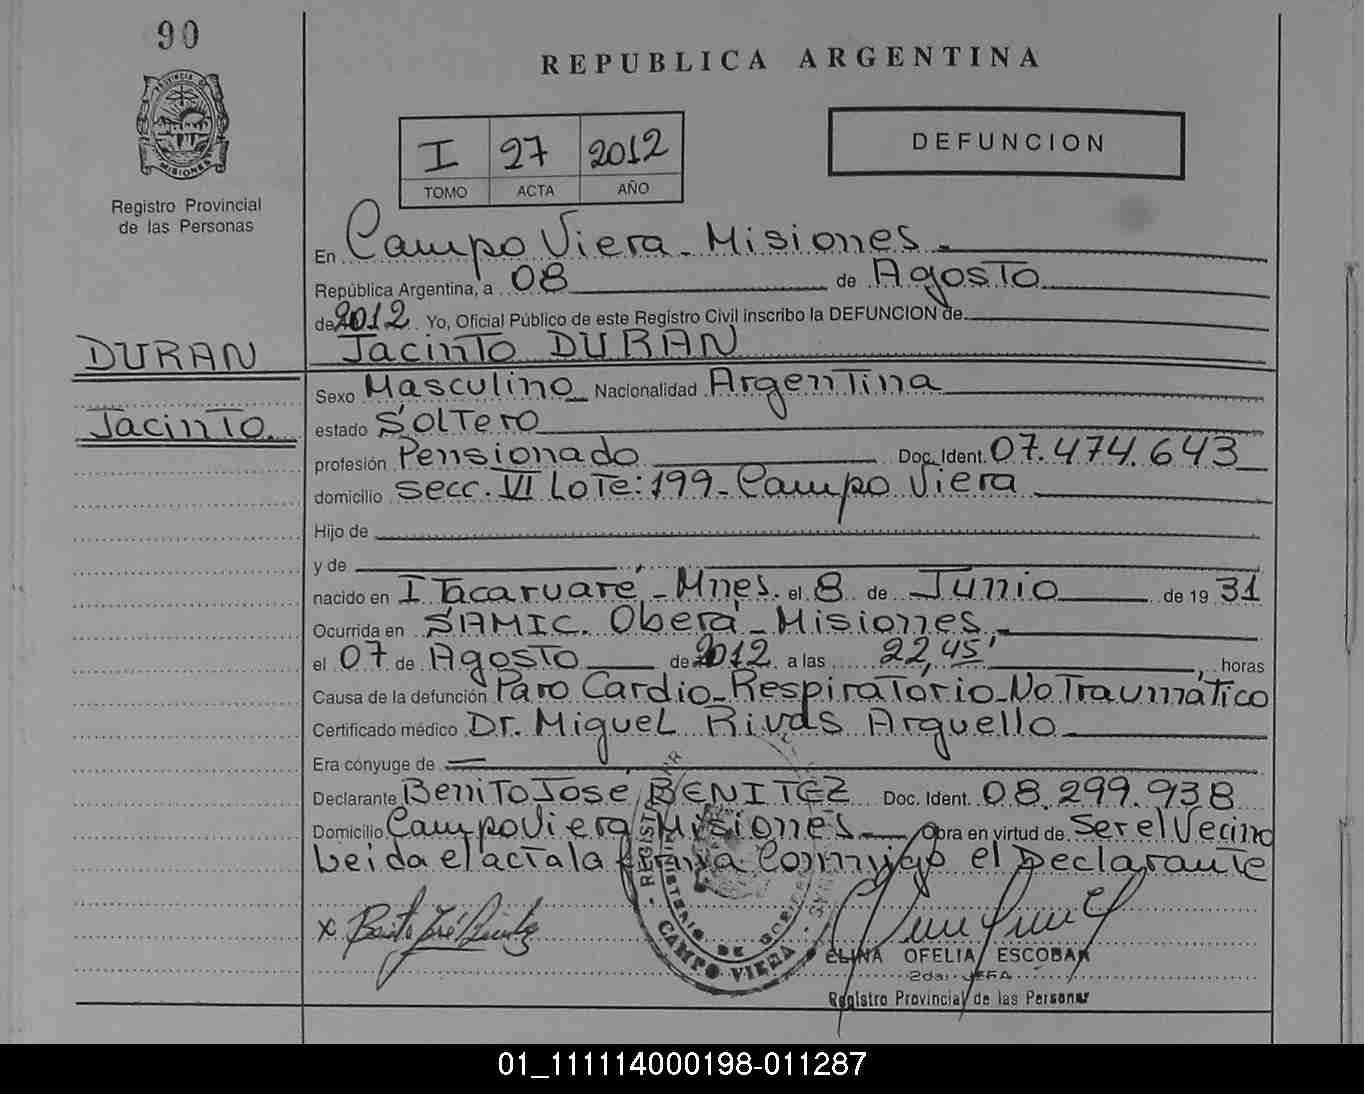 90
REPUBLICA ARGENTINA
PROVINCIA DE
MISIONES
Registro Provincial
de las Personas
I 27 2012
TOMO ACTA AÑO
DEFUNCION
En Campo Viera - Misiones -
República Argentina, a 08 de Agosto
de 2012. Yo, Oficial Público de este Registro Civil inscribo la DEFUNCION de
DURAN Jacinto DURAN
Sexo Masculino Nacionalidad Argentina
Jacinto. estado Soltero
profesión Pensionado Doc. Ident. 07.474.643
domicilio secc. VI Lote: 199 - Campo Viera
Hijo de
y de
nacido en Itacaruaré - Mnes. el 8 de Junio de 19 31
Ocurrida en SAMIC. Oberá - Misiones -
el 07 de Agosto de 2012 a las 22,45' horas
Causa de la defunción Paro Cardio-Respiratorio-No Traumático
Certificado médico Dr. Miguel Rivas Arguello
Era cónyuge de —
Declarante Benito José BENITEZ Doc. Ident. 08.299.938
Domicilio Campo Viera Misiones — Obra en virtud de Ser el Vecino
Leida el acta la firma Conmigo el Declarante
x Benito José Benitez
CAMPO VIERA
ELINA OFELIA ESCOBAR
2da. JEFA
Registro Provincial de las Personas
01_111114000198-011287